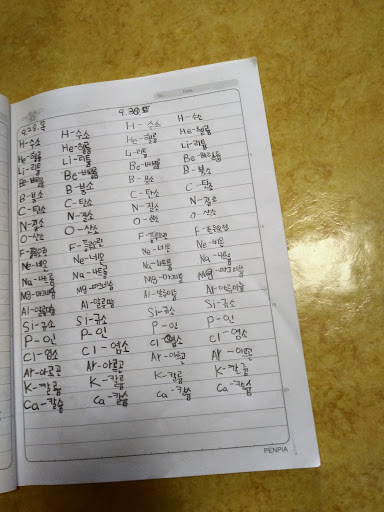 9.28.목
H-수소
He-헬륨
Li-리튬
Be-베릴륨
B-붕소
C-탄소
N-질소
O-산소
F-플루오린
Ne-네온
Na-나트륨
Mg-마그네슘
Al-알루미늄
Si-규소
P-인
Cl-염소
Ar-아르곤
K-칼륨
Ca-칼슘
H-수소
He-헬륨
Li-리튬
Be-베릴륨
B-붕소
C-탄소
N-질소
O-산소
F-플루오린
Ne-네온
Na-나트륨
Mg-마그네슘
Al-알루미늄
Si-규소
P-인
Cl-염소
Ar-아르곤
K-칼륨
Ca-칼슘
9.30 토
H-수소
He-헬륨
Li-리튬
Be-베릴륨
B-붕소
C-탄소
N-질소
O-산소
F-플루오린
Ne-네온
Na-나트륨
Mg-마그네슘
Al-알루미늄
Si-규소
P-인
Cl-염소
Ar-아르곤
K-칼륨
Ca-칼슘
H-수소
He-헬륨
Li-리튬
Be-베릴륨
B-붕소
C-탄소
N-질소
O-산소
F-플루오린
Ne-네온
Na-나트륨
Mg-마그네슘
Al-알루미늄
Si-규소
P-인
Cl-염소
Ar-아르곤
K-칼륨
Ca-칼슘
PENPIA